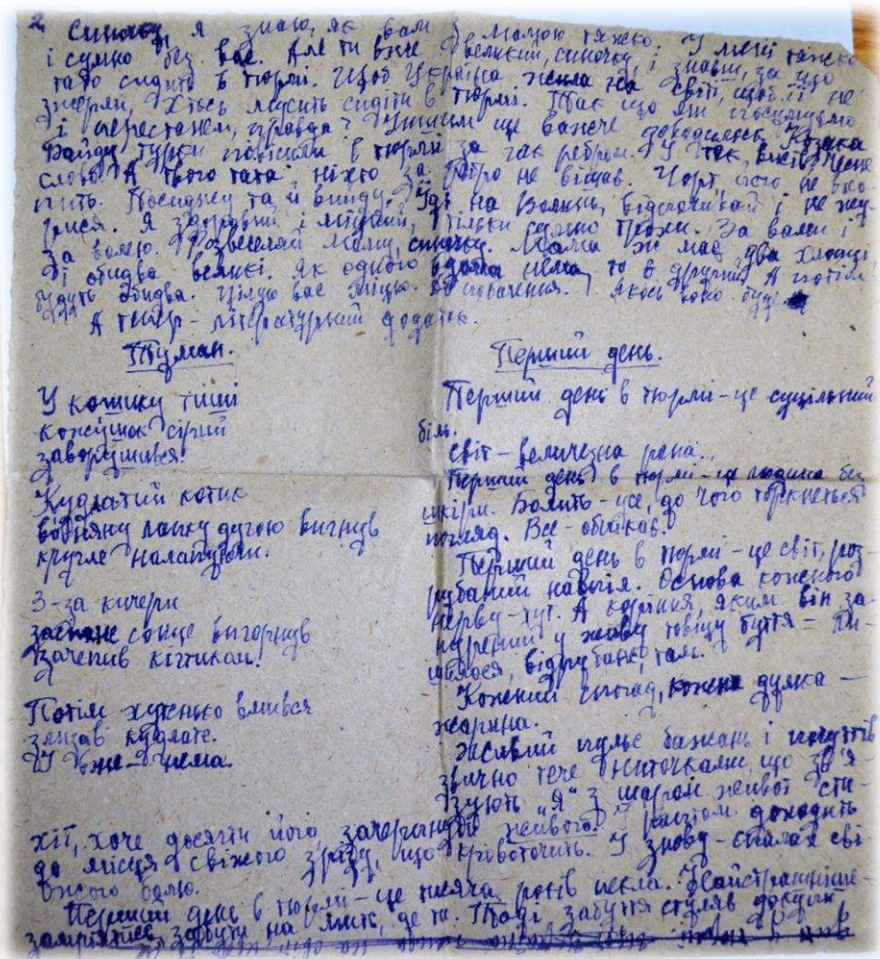 2 Синочку, я знаю, як вам з мамою тяжко. У мені тяжко
і сумно без вас. Але ти вже великий, синочку, і знаєш, за що
тато сидить в тюрмі. Щоб Україна жила на світі, щоб її не
зжерли, хтось мусить сидіти в тюрмі. Так що ми посумуємо
і перестанем, правда? Іншим ще важче доводилось. Козака
Байду турки повісили в тюрмі за гак ребром. У гак,
слово. А твого тата ніхто за ребро не вішав. Чорт його не
пить. Посиджу та й вийду. Їдь на Волинь, відпочивай і не жу-
рися. Я здоровий і міцний, тільки сумно трохи. За вами і
за волею. Розвеселяй маму, синочку. Мама ж має два хлопці,
і обидва великі. Як одного вдома нема, то є другий. А потім
будуть обидва. Цілую вас міцно. До побачення. Якось воно буде.
А тепер - літературний додаток.
Туман.
У кошику тиші
кожушок сірий
заворушився.
Кудлатий котик
водняну лапку дугою вигнув
кругле налапуючи.
З-за кичери
заспане сонце вигорнув
зачепив кігтиком.
Потім хутенько вмився
злизав кудлате.
І вже - нема.
Перший день.
Перший день в тюрмі - це суцільний
біль.
Світ - величезна рана.
Перший день в тюрмі - це людина без
шкіри. Болить - усе, до чого торкнеться
погляд. Все - обпікає.
Перший день в тюрмі - це світ, роз-
рубаний навпіл. Основа кожного
нерву - тут. А коріння, яким він за-
нурений у живу товщу буття - ли-
шилося, відрубане, там.
Кожний спогад, кожна думка -
жарина.
Жвавий пульс бажань і почуттів
звично тече ниточками, що зв'я-
зують "я" з шаром живої сти-
хії, хоче досягти його, зачерпнути живого. І раптом доходить
до місця свіжого зрізу, що кровоточить. І знову - спалах сві-
жого болю.
Перший день в тюрмі - це тисяча років пекла. Найстрашніше -
забути на мить, де ти. Тоді забуття